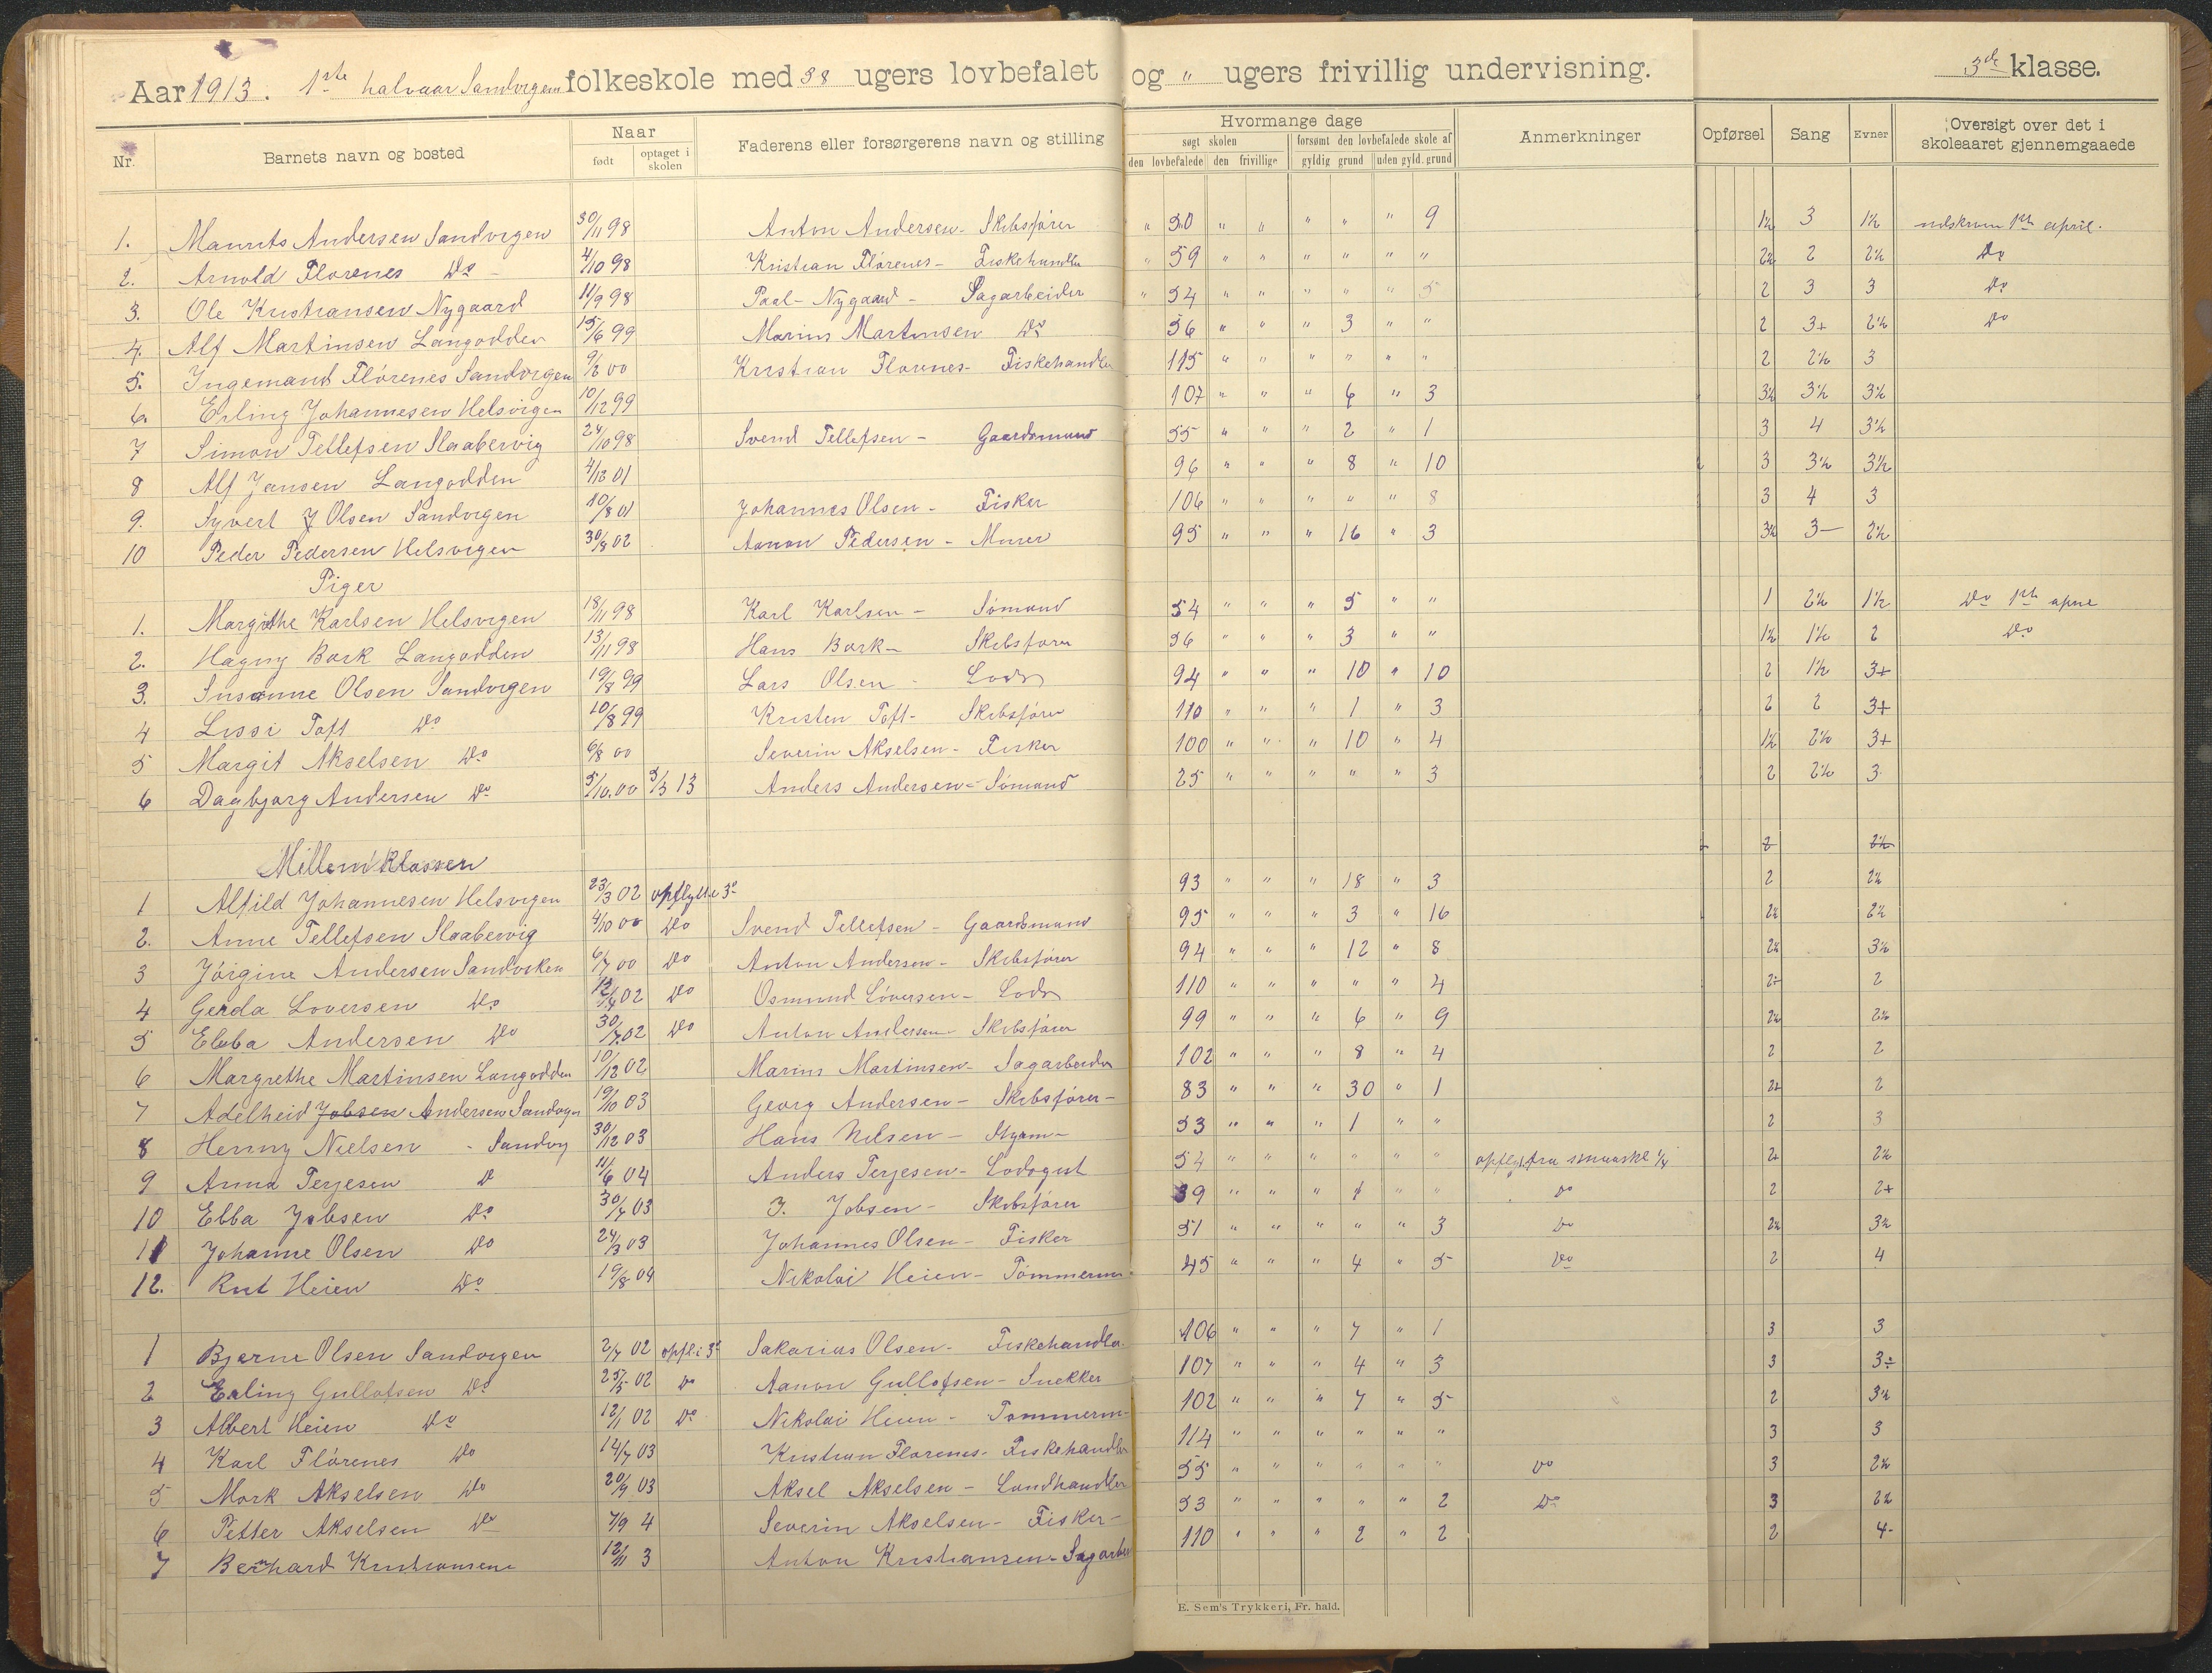 Aar 1913. 1ste halvaar Sandvigens folkeskole med 38 ugers lovbefalet og " ugers frivillig undervisning. 3de klasse.
Nr. Barnets navn og bosted Naar født optaget i skolen Faderens eller forsørgerens navn og stilling Hvormange dage søgt skolen den lovbefalede den frivillige forsømt den lovbefalede skole af gyldig grund uden gyld. grund Anmerkninger Opførsel Sang Evner Oversigt over det i skoleaaret gjennemgaaede
1. Maurits Andersen Sandvigen 30/11 98 Anton Andersen - Skibsfører " 50 " " " " " 9 1½ 3 1½ udskreven 1ste april.
2. Arnold Florenes Do 4/10 98 Kristian Flörenes - Fiskehandler " 59 " " " " " " 2½ 2 2½ Do
3. Ole Kristiansen Nygaard 11/9 98 Paal - Nygaard - Sagarbeider " 54 " " " " " 5 2 3 3 Do
4. Alf Martinsen Langodden 15/6 99 Marius Martinsen Do 56 " " " 3 " " 2 3+ 2½ Do
5. Ingemand Flörenes Sandvigen 9/2 00 Kristian Florenes - Fiskehandler 115 " " " " " " 2 2½ 3
6. Erling Johannesen Helsvigen 10/12 99 107 " " " 6 " 3 3½ 3½ 3½
7 Simon Tellefsen Slaabervig 24/10 98 Svend Tellefsen - Gaardsmand 55 " " " 2 " 1 3 4 3½
8 Alf Jansen Langodden 4/12 01 96 " " " 8 " 10 3 3½ 3½
9. Syvert J Olsen Sandvigen 10/8 01 Johannes Olsen - Fisker 106 " " " " " 8 3 4 3
10 Peder Pedersen Helsvigen 30/8 02 Aanon Pedersen - Murer 95 " " " 16 " 3 3½ 3- 2½
Piger
1. Margithe Karlsen Helsvigen 18/11 98 Karl Karlsen - Sömand 54 " " " 5 " " 1 2½ 1½ Do 1ste april
2. Hagny Bork Langodden 13/11 98 Hans Bork - Skibsfører 56 " " " 3 " " 1½ 1½ 2 Do
3. Susanne Olsen Sandvigen 19/8 99 Lars Olsen - Lods 94 " " " 10 " 10 2 1½ 3+
4 Lissi Toft Do 10/8 99 Kristen Toft - Skibsfører 110 " " " 1 " 3 2 2 3+
5 Margit Akselsen Do 6/8 00 Severin Akselsen - Fisker 100 " " " 10 " 4 1½ 2½ 3+
6 Dagbjørg Andersen Do 5/10.00 3/3 13 Anders Andersen - Sömand 25 " " " " " 3 2 2½ 3
2 2½
Mellemklassen
1 Alfild Johannesen Helsvigen 23/3 02 opflyttet 3e 93 " " " 18 " 3 2 2½
2. Anne Tellefsen Slaabervig 4/10 00 Do Svend Tellefsen - Gaardsmand 95 " " " 3 " 16 2½ 2½
3 Jörgine Andersen Sandviken 6/7 00 Do Anton Andersen - Skibsfører 94 " " " 12 " 8 2½ 3½
4 Gerda Loversen Do 02 Do Osmund Löversen - Lods 110 " " " " " 4 2÷ 2
5 Ebba Andersen Do 30/7.02 Do Anton Andersen - Skibsfører 99 " " " 6 " 9 2½ 2½
6 Margrethe Martinsen Langodden 10/12 02 Marius Martinsen - Sagarbeider 102 " " " 8 " 4 2 2
7 Adelheid Jobsen Andersen Sandvigen 19/10 03 Georg Andersen - Skibsfører - 83 " " " 30 " 1 2+ 2
8 Henny Nielsen - Sandvig 30/12 03 Hans Nilsen - Styrm - 53 " " " 1 " " 2 3
9 Anna Terjesen D 11/6 04 Anders Terjesen - Lodsgut 54 " " " " " " opflyt fra smaaskl 1/4 2+ 2½
10 Ebba Jobsen Do 30/7 03 J. Jobsen - Skibsfører 39 " " " 1 " " Do 2 2+
11 Johanne Olsen Do 24/3 03 Johannes Olsen - Fisker 51 " " " " " 3 Do 2½ 3½
12. Rut Heien Do 19/8 04 Nikolai Heien - Tömmerm 45 " " " 4 " 5 Do 2 4
1 Bjarne Olsen Sandvigen 2/7 02 opfl. i 3e Sakarias Olsen - Fiskehandler. 106 " " " 7 " 1 3 3
2 Erling Gullofsen Do 25/5 02 Do Aanon Gullofsen - Snekker 107 " " " 4 " 3 3 3÷
3 Albert Heien Do 12/1 02 Do Nikolai Heien - Tommerm - 102 " " " 7 " 5 2 3½
4 Karl Flörenes Do 14/7 03 Kristian Florenes - Fiskehandler 114 " " " " " " 3 3
5 Mork Akselsen Do 20/9 03 Aksel Akselsen - Landhandler 55 " " " " " " Do 3 2½
6 Petter Akselsen Do 7/9 4 Severin Akselsen - Fisker - 53 " " " " " 2 Do 3 2½
7 Bernhard Kristiansen 12/11 3 Anton Kristiansen - Sagarbei 110 " " " 2 " 2 2 4-
E. Sem's Trykkeri, Fr. hald.